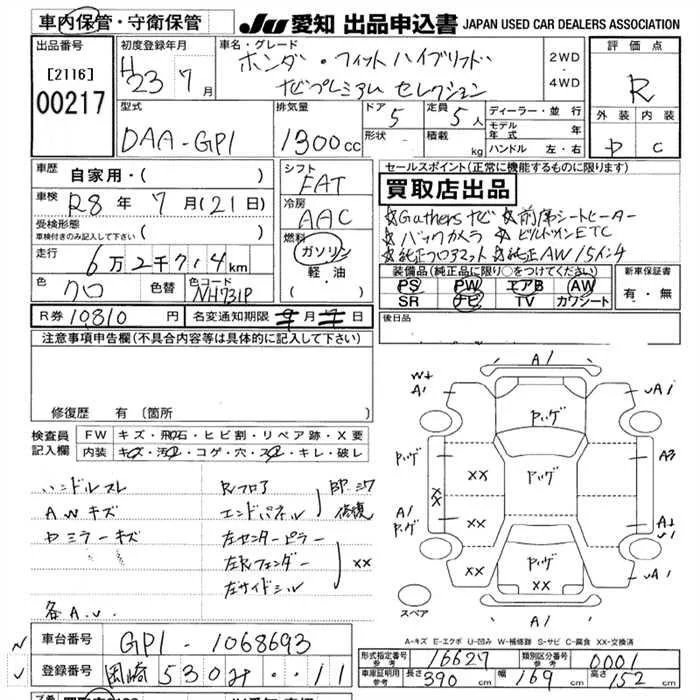 車内保管・守衛保管
JU愛知 出品申込書 JAPAN USED CAR DEALERS ASSOCIATION
出品番号
[2116]
00217
初度登録年月
H23年7月
車名・グレード
ホンダ・フィットハイブリッド
ナビプレミアム セレクション
2WD
・
4WD
評価点
R
外装 内装
D C
型式
DAA-GP1
排気量
1300cc
ドア 5
形状
定員 5人
積載 kg
ディーラー・並行
モデル年式 年
ハンドル 左・右
車歴
自家用・( )
車検
R8年7月(21日)
受検形態
車検付きのみ記入して下さい ( )
走行
6万2千714km
色
クロ
色替
色コード
NH731P
シフト
FAT
冷房
AAC
燃料
ガソリン
軽・油
( )
セールスポイント(正常に機能するものに限ります)
買取店出品
☆Gathersナビ ☆前席シートヒーター
☆バックカメラ ☆ビルトインETC
☆純正フロアマット ☆純正AW15インチ
装備品(純正品に限り○をつけてください)
PS PW エアB AW
SR ナビ TV カワシート
新車保証書
有・無
R券 10810円
名変通知期限 月 日
後日品
注意事項申告欄(不具合内容等は具体的に記入して下さい)
修復歴 有(箇所 )
検査員
記入欄
FW キズ・飛石・ヒビ割・リペア跡・X要
内装 キズ・汚レ・コゲ・穴・スレ・キレ・破レ
ハンドルスレ
AWキズ
ドミラーキズ
各A.U.
Rフロア
エンドパネル
修復
左センターピラー
左Rフェンダー
左サイドシル
XX
A1
W+
A1
UA1
Pッゲ
Pッゲ
A3
XX
Pッゲ
XX
A1
Pッゲ
XX
Pッゲ
XX
UA1
A1
スペア
A-キズ E-エクボ U-凹み W-補修跡 S-サビ C-腐食 XX-交換済
車台番号
GP1-1068693
登録番号
岡崎530み・・11
形式指定番号
参考
16627
類別区分番号
参考
0001
車庫証明用
参考
長さ 390cm
幅 169cm
高さ 152cm